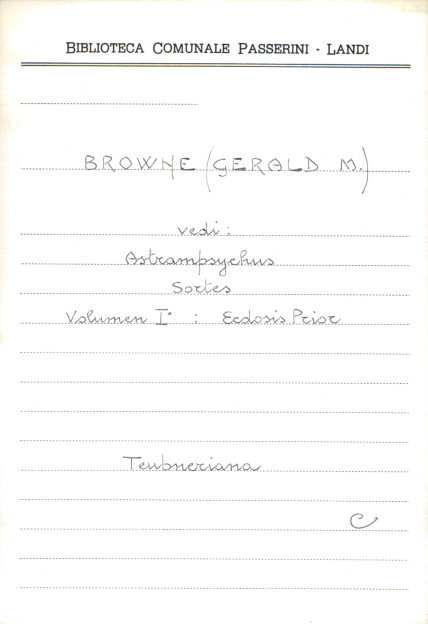 BIBLIOTECA COMUNALE PASSERINI - LANDI
BROWNE (GERALD M.)
vedi:
Astrampsychus
Sortes
Volumen I° : Ecdosis Prior
Teubneriana
C